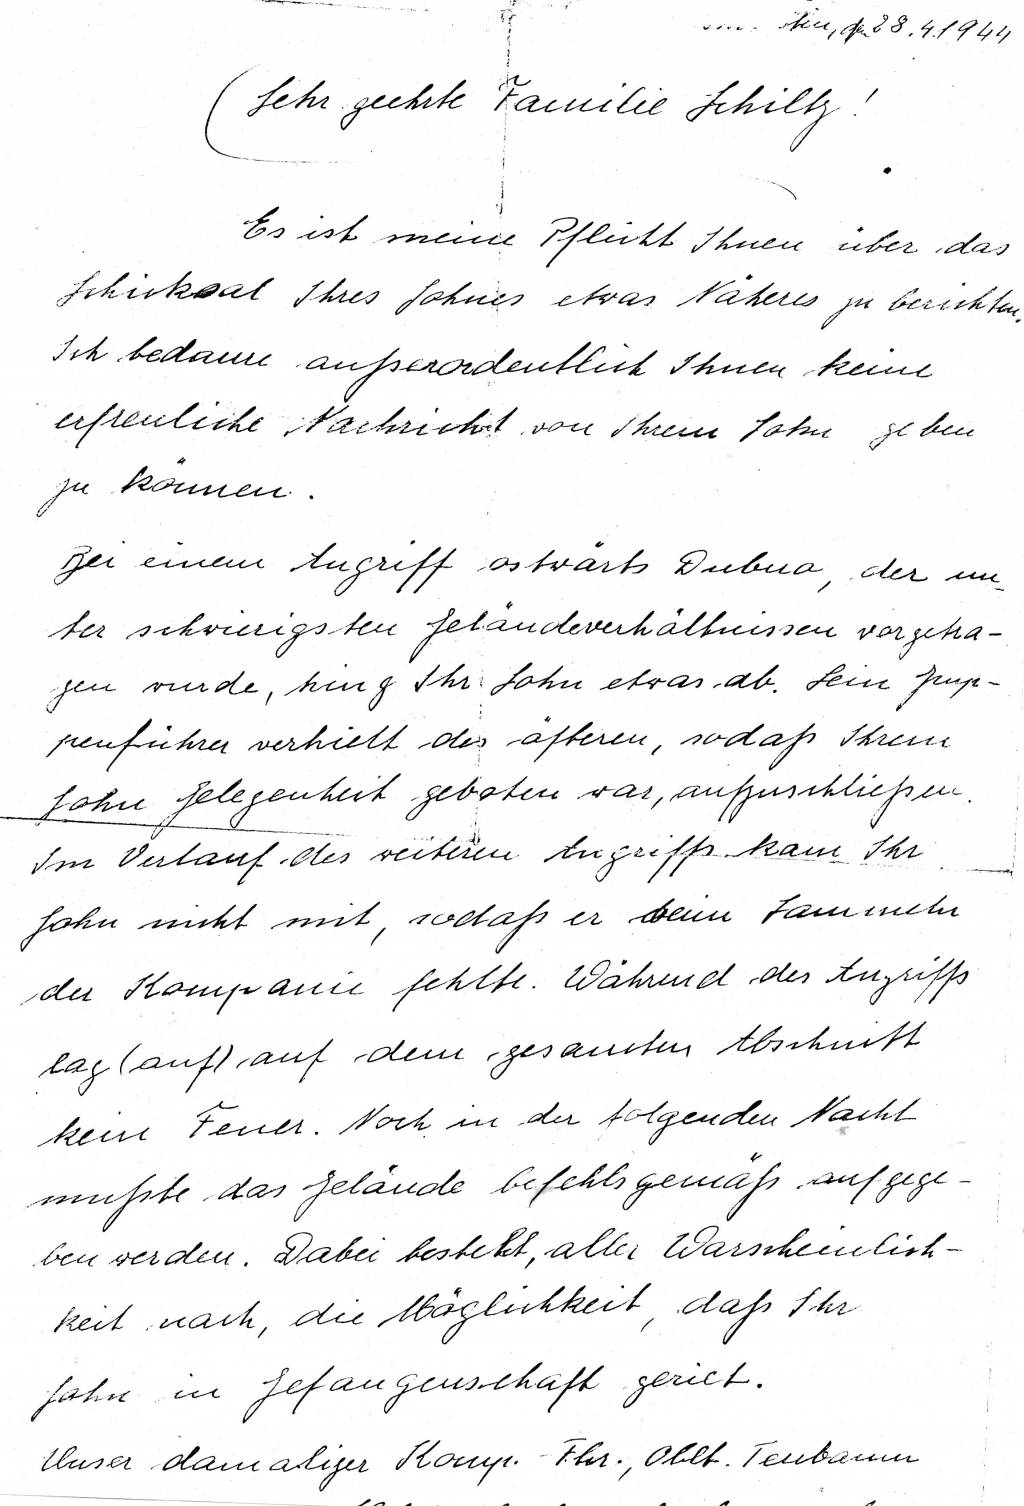 den 28.4.1944
Sehr geehrte Familie Schiltz!
Es ist meine Pflicht Ihnen über das
Schicksal Ihres Sohnes etwas Näheres zu berichten.
Ich bedaure außerordentlich Ihnen keine
erfreuliche Nachricht von Ihrem Sohn geben
zu können.
Bei einem Angriff ostwärts Dubno, der un-
ter schwierigsten Geländeverhältnissen vorgetra-
gen wurde, hing Ihr Sohn etwas ab. Sein Grup-
penführer verhielt des öfteren, sodaß Ihrem
Sohn Gelegenheit geboten war, aufzuschließen.
Im Verlauf des weiteren Angriffs kam Ihr
Sohn nicht mit, sodaß er beim Sammeln
der Kompanie fehlte. Während des Angriffs
lag (auf) auf dem gesamten Abschnitt
kein Feuer. Noch in der folgenden Nacht
mußte das Gelände befehlsgemäß aufgege-
ben werden. Dabei besteht, aller Warscheinlich-
keit nach, die Möglichkeit, daß Ihr
Sohn in Gefangenschaft geriet.
Unser damaliger Komp. Fhr., Oblt. Tenbaum